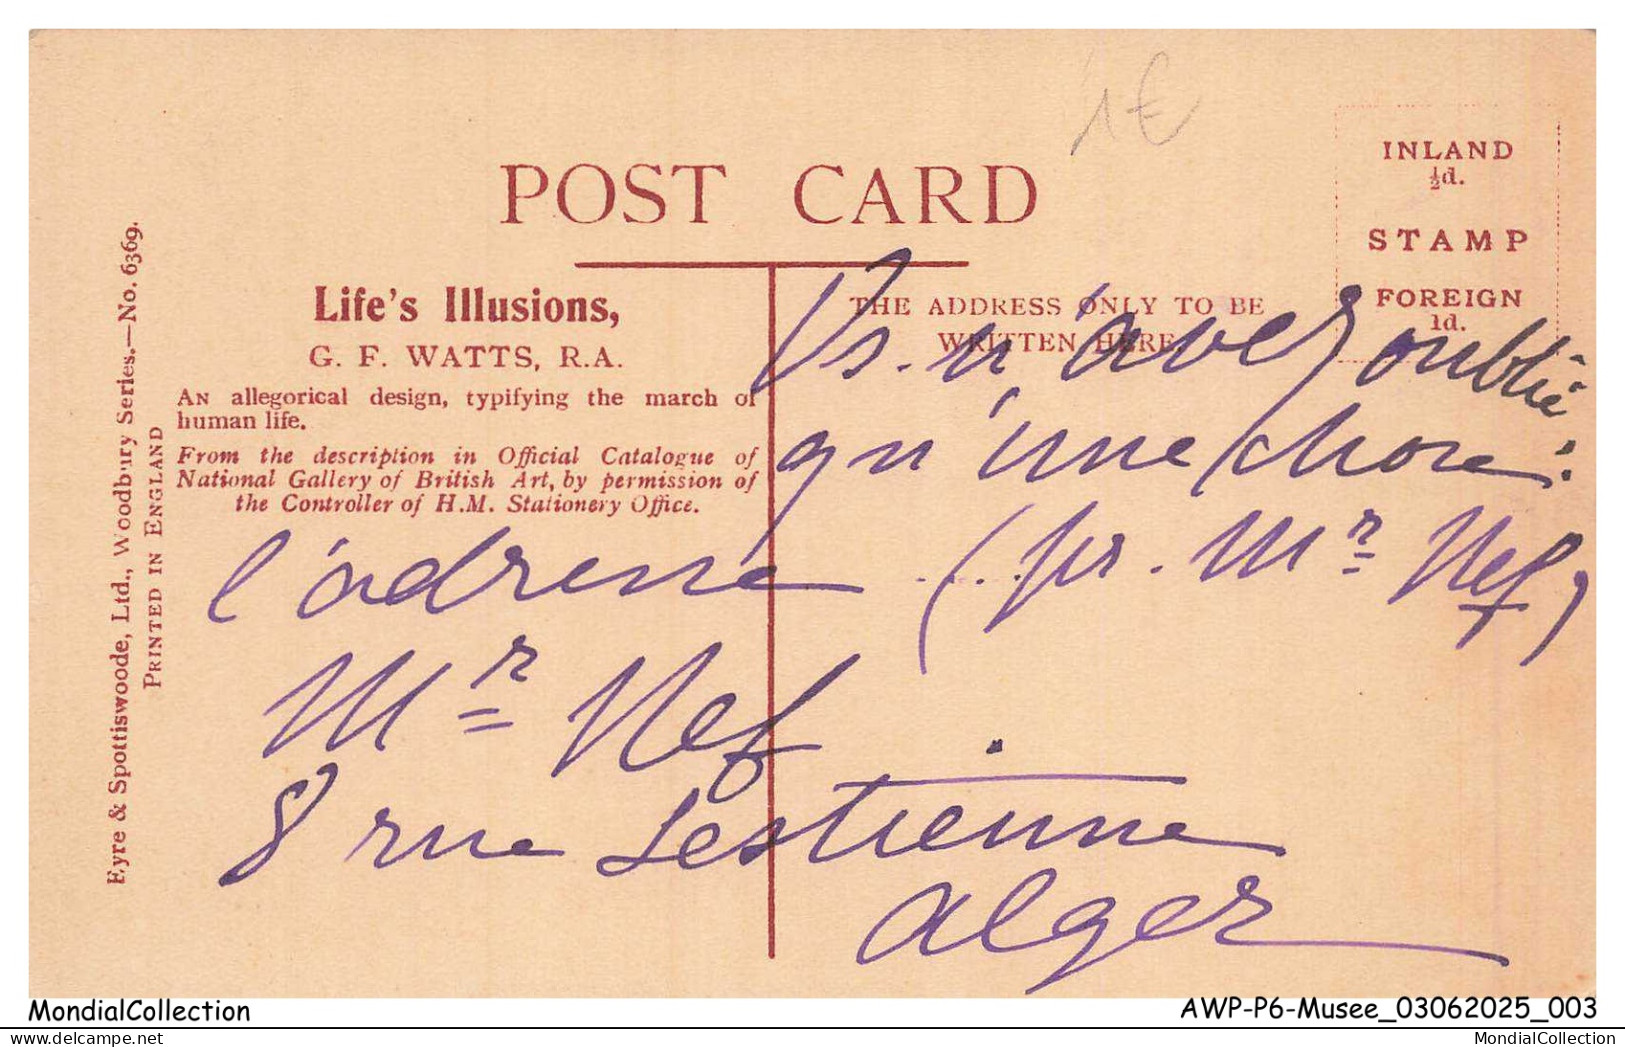 1€
POST CARD
INLAND
½d.
STAMP
FOREIGN
1d.
Eyre & Spottiswoode, Ltd., Woodbury Series.—No. 6369.
PRINTED IN ENGLAND
Life's Illusions,
G. F. WATTS, R.A.
AN allegorical design, typifying the march of
human life.
From the description in Official Catalogue of
National Gallery of British Art, by permission of
the Controller of H.M. Stationery Office.
THE ADDRESS ONLY TO BE
WRITTEN HERE
Vs. n'avez oublié
qu'une chose:
l'adresse .... (pr. Mr Nef)
Mr Nef
8 rue Lestienne
Alger
MondialCollection
AWP-P6-Musee_03062025_003
MondialCollection.net
MondialCollection